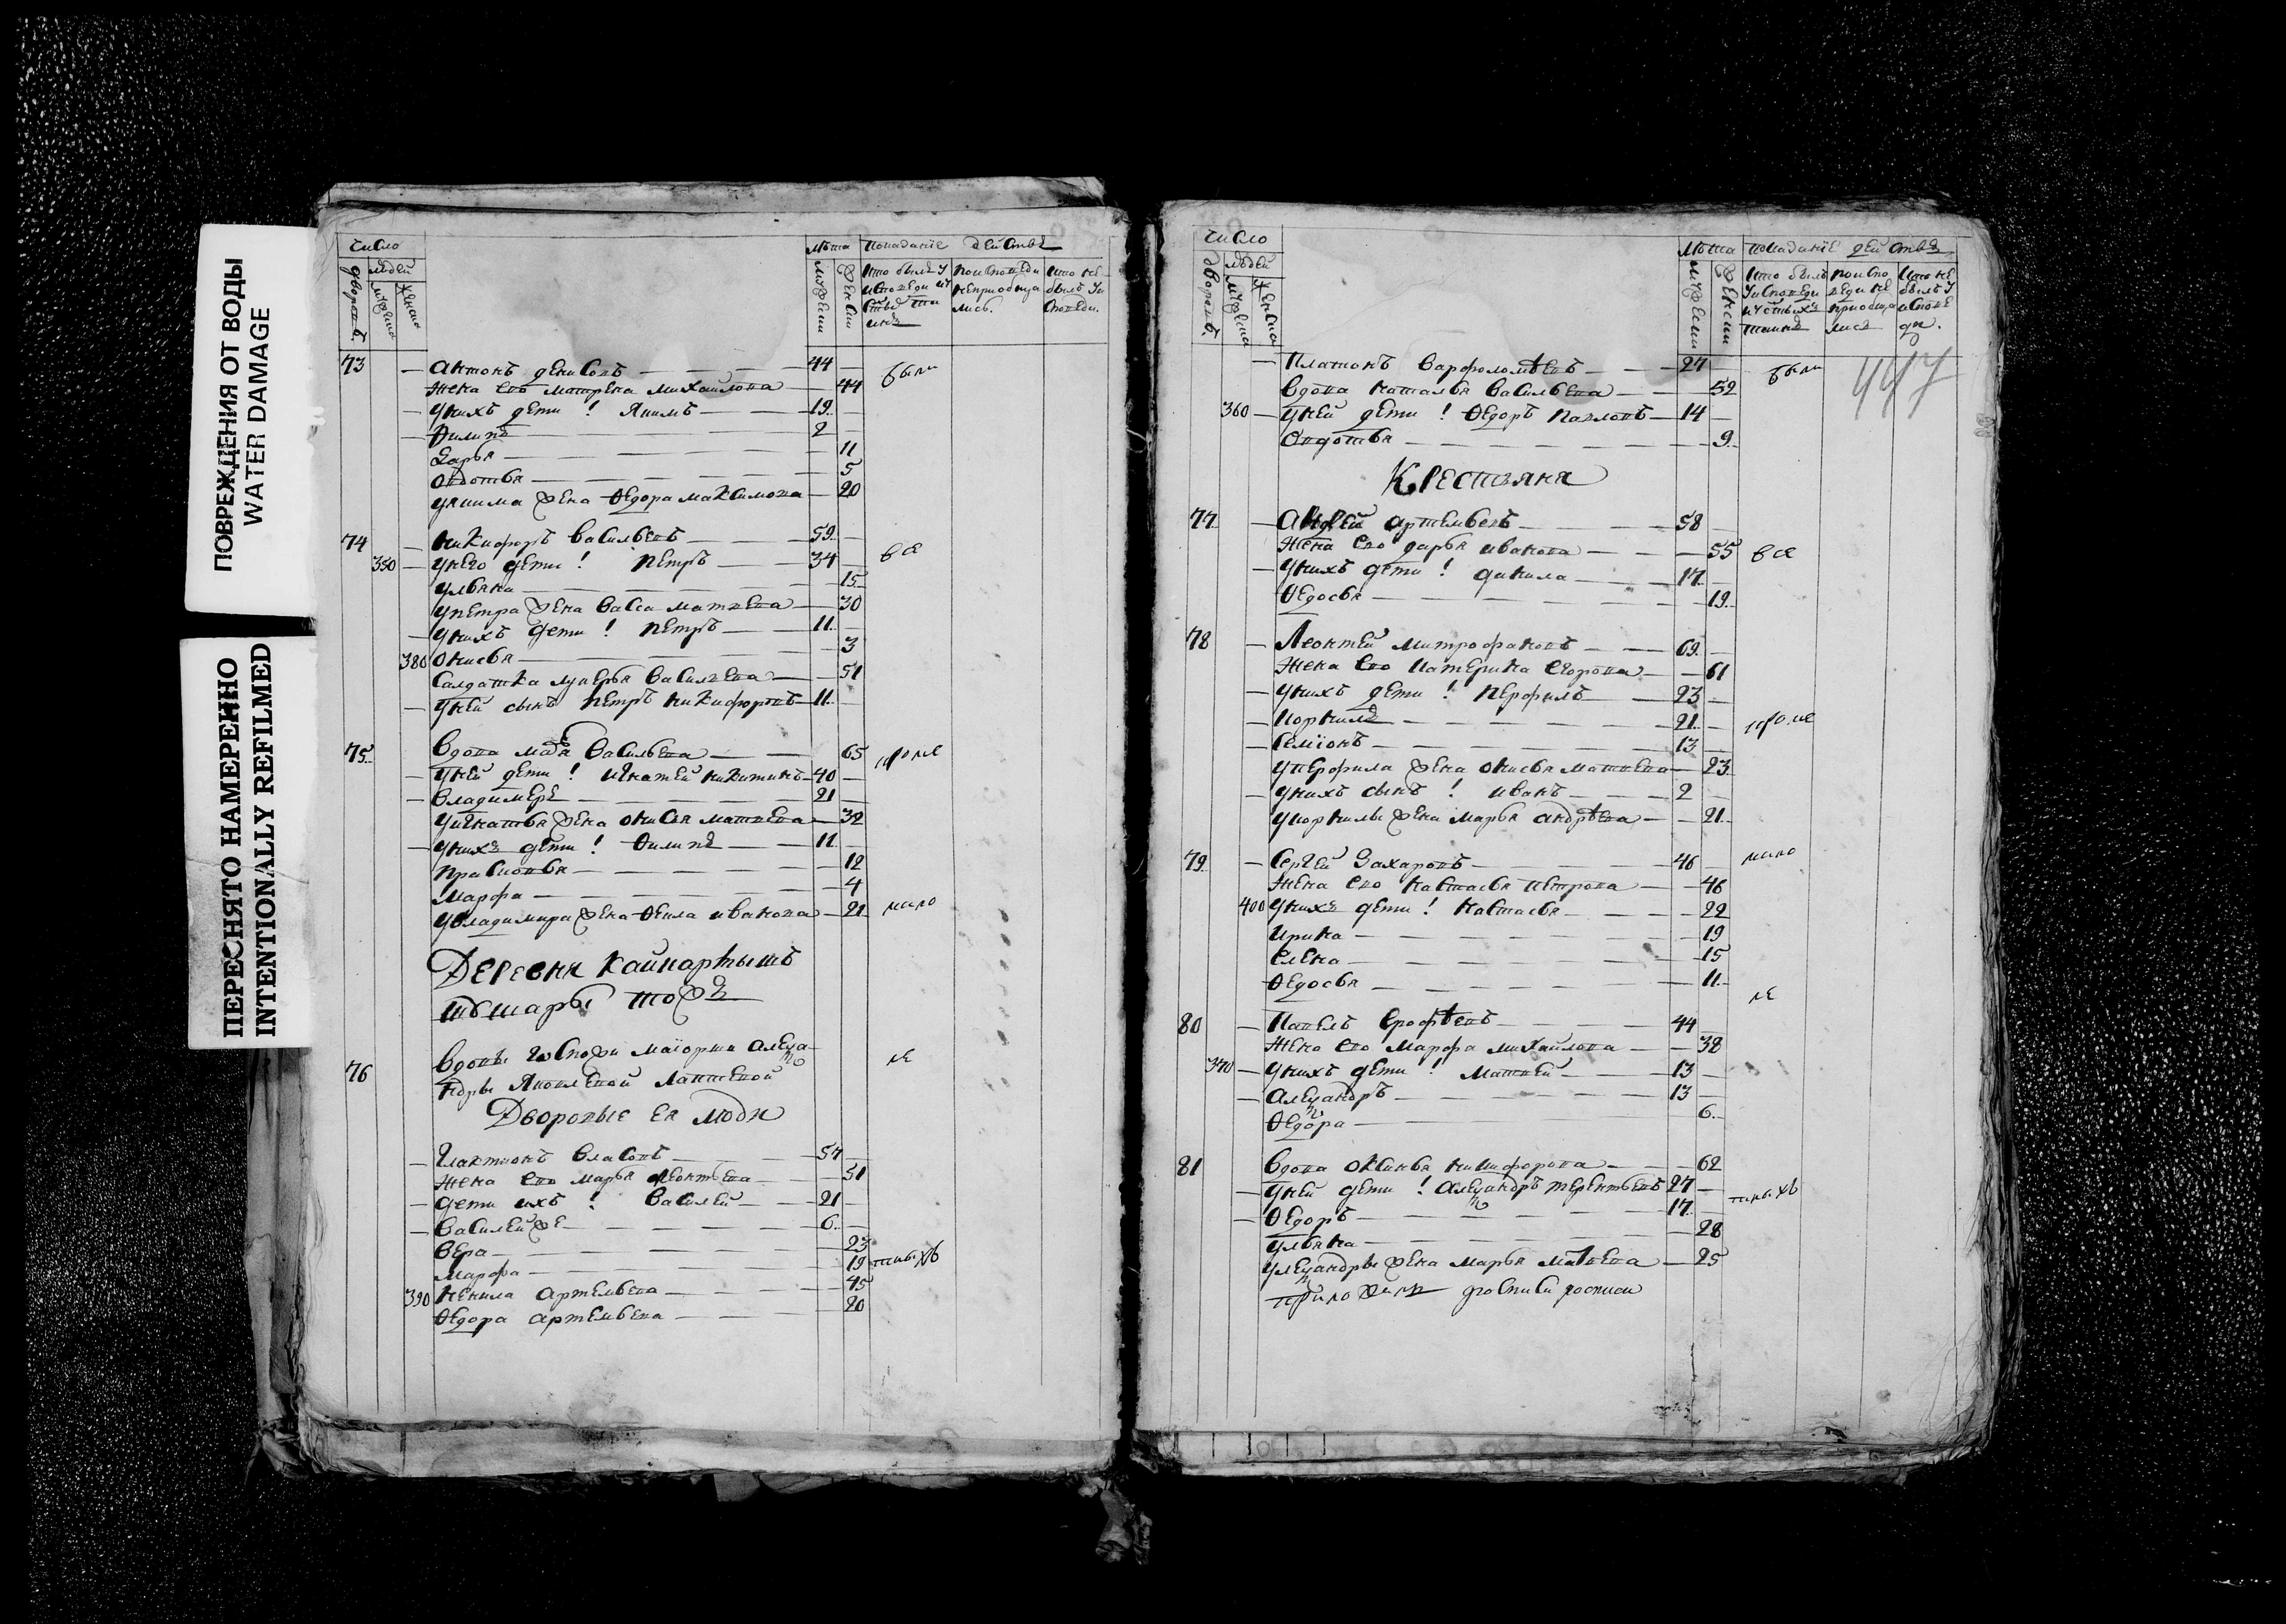 ПОВРЕЖДЕНИЯ ОТ ВОДЫ
WATER DAMAGE
ПЕРЕСНЯТО НАМЕРЕННО
INTENTIONALLY REFILMED
число
лѣта показанїе действъ
дворовъ людей
мужеска женска
73 Антонъ денисовъ 44 были
жена его матрена михайлова 44
унихъ дети ! Якимъ 19
Филипъ 2
Дарья 11
овдотья 5
уякима жена Федора максимова 20
74 никифоръ васильевъ 59
350 унего дети ! петръ 34 все
ульяна 15
упетра жена васса матвева 30
унихъ дети ! петръ 11
380 онисья 3
салдатка лукерья василева 51
уней сынъ петръ никифоровъ 11
75 вдова васильева 65 кроме
уней дети ! игнатей никитинъ 40
владимеръ 21
уигнатья жена онисья матвева 32
унихъ дети ! Филипъ 11
прасковья 12
марфа 4
увладимира жена Фекла иванова 21 мало
Деревня
тожъ
76 вдовы госпожи маїорши алекса
ндры Яковлевой не
Дворовые ея люди
галктионъ власовъ 57
жена его марья леонтьева 51
дети ихъ ! василей 21
василей же 6
вера 23
марфа 19
390 ненила артемьева 45
Федора артемьева 20
число
лѣта показанїе действъ
дворовъ людей
мужеска женска
447
Платонъ варфоломѣевъ 27 были
вдова наталья васильева 52
360 уней дети ! Федоръ павловъ 14
овдотья 9
Крестьяня
77 Андрей артемьевъ 58
жена его дарья иванова 55 все
унихъ дети ! данила 17
Федосья 19
78 Леонтей митрофановъ 69
жена его катерина егорова 61
унихъ дети ! перфилъ 23
корнилъ 21 кроме
семїонъ 13
уперфила жена онисья матвева 23
унихъ сынъ ! иванъ 2
укорнилы жена марья андрѣева 21
79 Сергей Захаровъ 46 мало
жена его настасья петрова 46
400 унихъ дети ! настасья 22
ирина 19
елена 15
Федосья 11
не
80 Павелъ ерофѣевъ 44
жена его марфа михайлова 38
370 унихъ дети ! матвей 13
александръ 13
Федора 6
81 вдова оксинья никифорова 62
уней дети ! александръ терентьевъ 27
Федоръ 17
ульяна 28
жена марья матвева 25